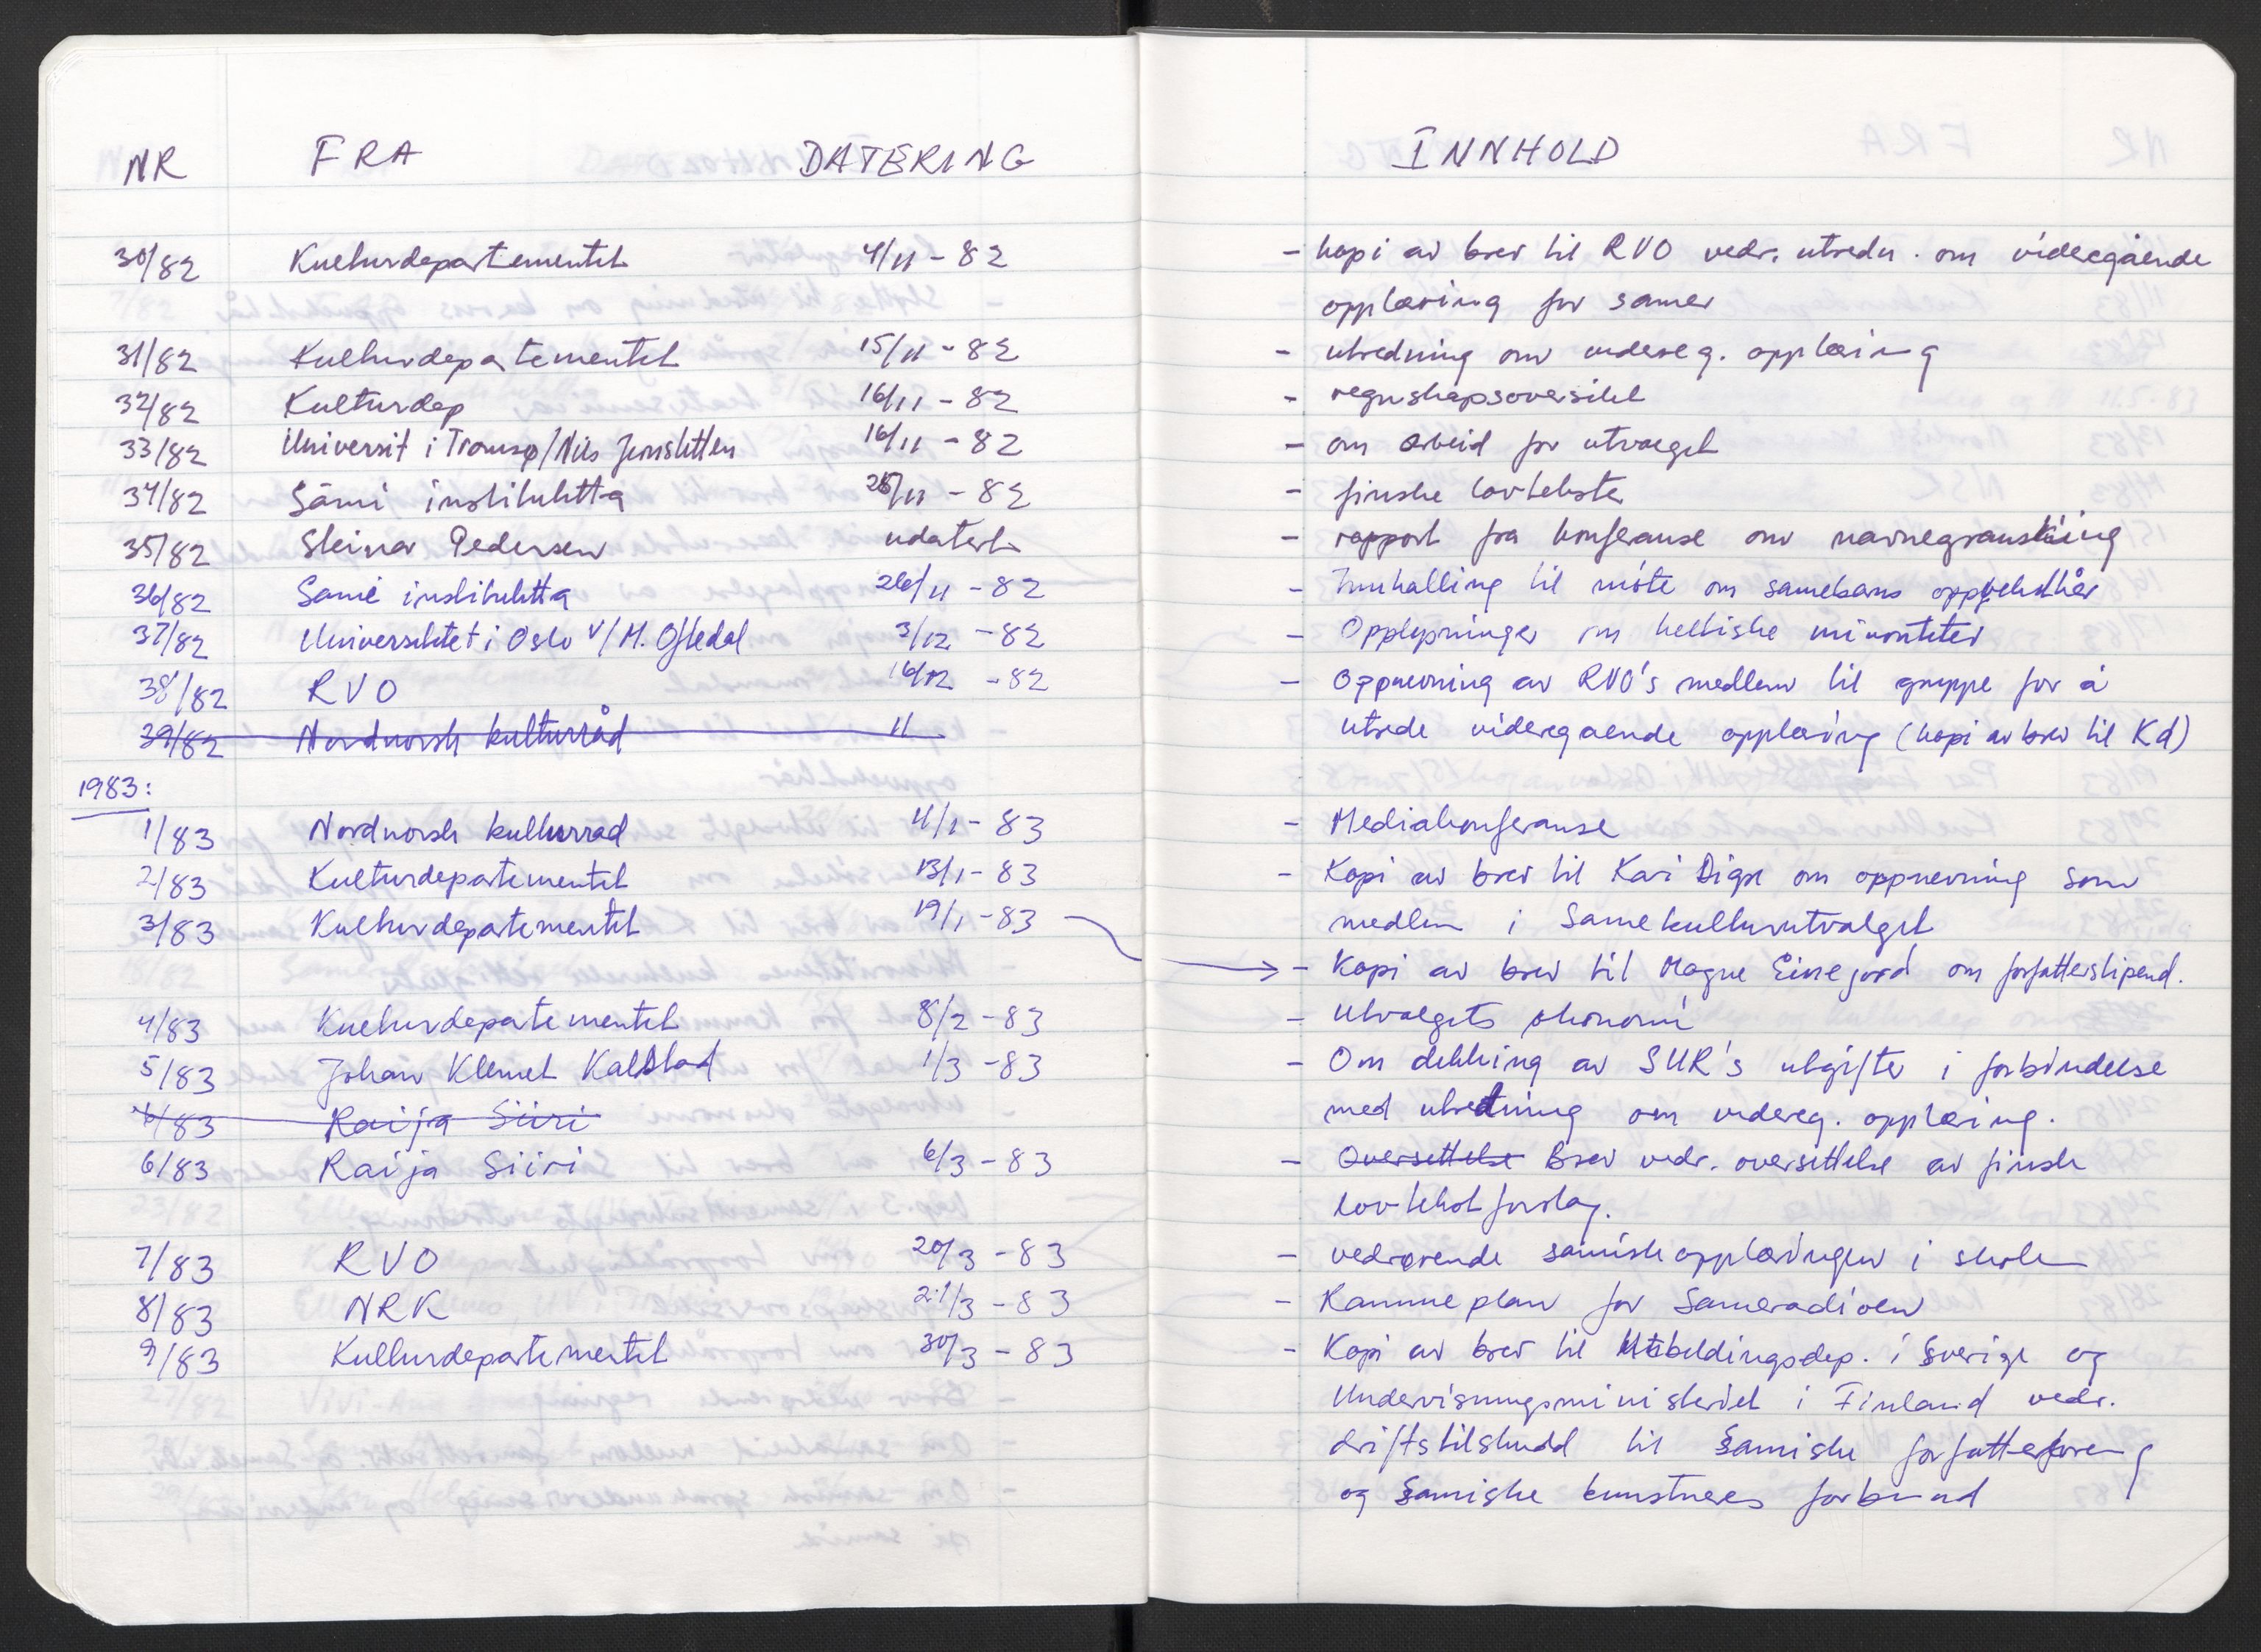 NR FRA DATERING INNHOLD
30/82 Kulturdepartementet 4/11 - 82 - kopi av brev til RVO vedr. utredn. om videregående
opplæring for samer
31/82 Kulturdepartementet 15/11 - 82 - utredning om videreg. opplæring
32/82 Kulturdep 16/11 - 82 - regnskapsoversikt
33/82 Universit i Tromsø/Nils Jernsletten 16/11 - 82 - om arbeid for utvalget
34/82 Sámi instituhtta /11 - 82 - finske lovtekster
35/82 Steinar Pedersen udatert - rapport fra konferanse om navnegranskiing
36/82 Sami instituhtta 26/11 - 82 - Innkalling til møte om samebarns oppvekstkår
37/82 Universitetet i Oslo v/ M. Oftedal 3/12 - 82 - Opplysninger om keltiske minoriteter
38/82 RVO 16/12 - 82 - Oppnevning av RVO's medlem til gruppe for å
39/82 Nordnorsk kulturråd 11 utrede videregaende opplæring (kopi av brev til Kd)
1983:
1/83 Nordnorsk kulturråd 11/1 - 83 - Mediakonferanse
2/83 Kulturdepartementet 13/1 - 83 - Kopi av brev til Kari om oppnevning som
medlem i Samekulturutvalget
3/83 Kulturdepartementet 19/1 - 83
- Kopi av brev til Magne Einejord om forfatterstipend.
4/83 Kulturdepartementet 8/2 - 83 - Utvalgets økonomi
5/83 Johan Klemet Kalstad 1/3 - 83 - Om dekking av SUR's utgifter i forbindelse
6/83 Raija Siiri med utredning om videreg. opplæring.
6/83 Raija Siiri 6/3 - 83 - Oversettelse Brev vedr. oversettelse av finsk
lovtekstforslag.
7/83 RVO 20/3 - 83 - vedrørende samiskopplæringen i skolen
8/83 NRK 21/3 - 83 - Rammeplan for Sameradioen
9/83 Kulturdepartementet 30/3 - 83 - Kopi av brev til Utbildingsdep. i Sverige og
Undervisningsministeriet i Finland vedr.
driftstilskudd til Samiske forfatterforening
og Samiske kunstneres forbund